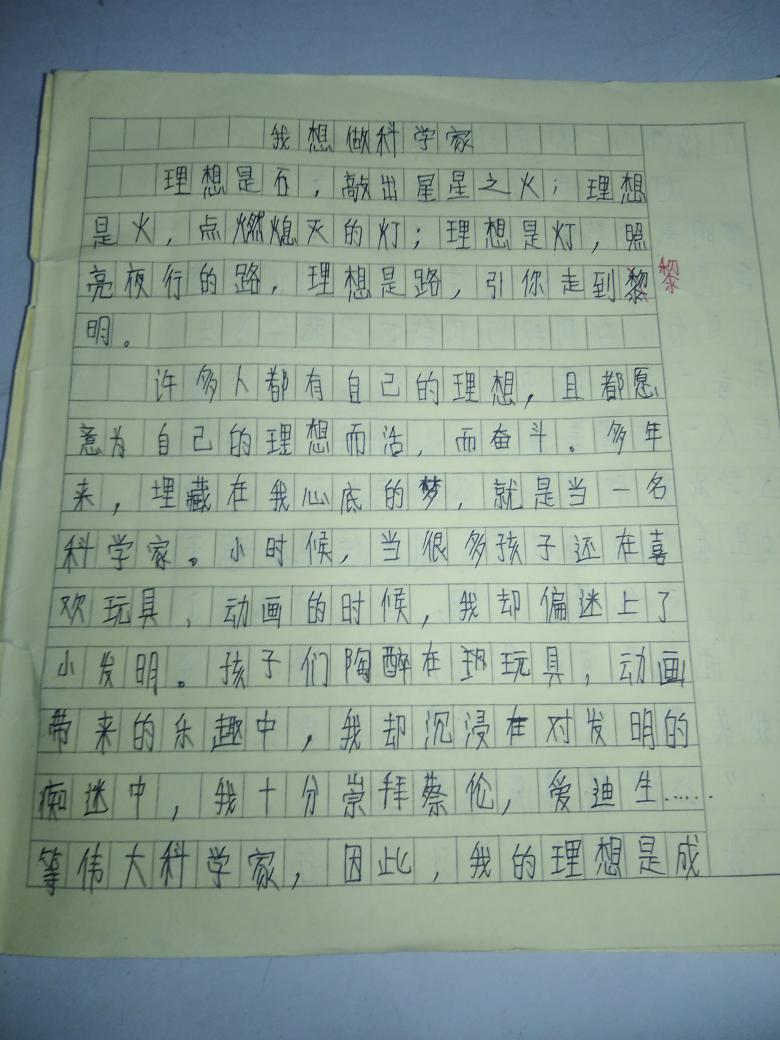 我想做科学家
理想是石，敲出星星之火；理想
是火，点燃熄灭的灯；理想是灯，照
亮夜行的路，理想是路，引你走到黎
黎
明。
许多人都有自己的理想，且都愿
意为自己的理想而活，而奋斗。多年
来，埋藏在我心底的梦，就是当一名
科学家。小时候，当很多孩子还在喜
欢玩具，动画的时候，我却偏迷上了
小发明。孩子们陶醉在玩玩具，动画
带来的乐趣中，我却沉浸在对发明的
痴迷中，我十分崇拜蔡伦，爱迪生……
等伟大科学家，因此，我的理想是成